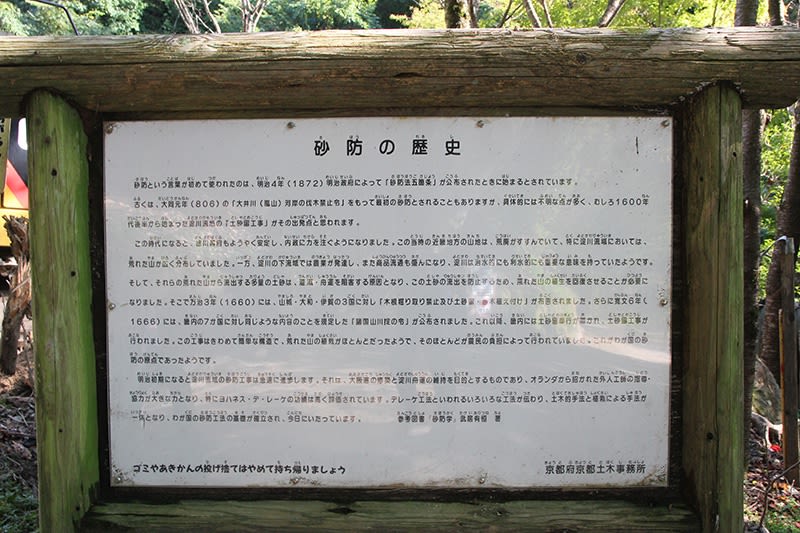 砂防の歴史
砂防という言葉が初めて使われたのは、明治4年(1872)明治政府によって「砂防法五箇条」が公布されたときに始まるとされています。
古くは、大同元年(806)の「大井川(嵐山)河岸の伐木禁止令」をもって最初の砂防とされることもありますが、具体的には不明な点が多く、むしろ1600年
代後半から始まった淀川流域の「土砂留工事」がその出発点と思われます。
この時代になると、徳川幕府もようやく安定し、内政に力を注ぐようになりました。この当時の近畿地方の山地は、荒廃がすすんでいて、特に淀川流域においては、
荒れた山が広く分布していました。一方、淀川の下流域では農業が発達し、また商品流通も盛んになり、淀川は治水的にも利水的にも重要な意味を持っていたようです。
そして、それらの荒れた山から流出する多量の土砂は、灌漑・舟運を阻害する原因となり、この土砂の流出を防止するため、荒れた山の植生を回復させることが必要に
なりました。そこで万治3年(1660)には、山城・大和・伊賀の3国に対し「木根堀り取り禁止及び土砂留 木植え付け」が指示されました。さらに寛文6年(
1666)には、畿内の7か国に対し同じような内容のことを規定した「諸国山川掟の令」が公布されました。これ以降、畿内には土砂留奉行が置かれ、土砂留工事が
行われました。この工事はきわめて簡単な構造で、荒れた山の緑気がほとんどだったようで、そのほとんどが農民の負担によって行われていました。これがわが国の砂
防の原点であったようです。
明治初期になると淀川流域の砂防工事は急速に進歩します。それは、大阪港の修築と淀川舟運の維持を目的とするものであり、オランダから招かれた外人工師の指導・
協力が大きな力となり、特にヨハネス・デ・レーケの功績は高く評価されています。デレーケ工法といわれるいろいろな工法が伝わり、土木的手法と植栽による手法が
一気となり、わが国の砂防の工法の基礎が確立され、今日にいたっています。 参考図書「砂防学」武居有恒 著
ゴミやあきかんの投げ捨てはやめて持ち帰りましょう
京都府京都土木事務所